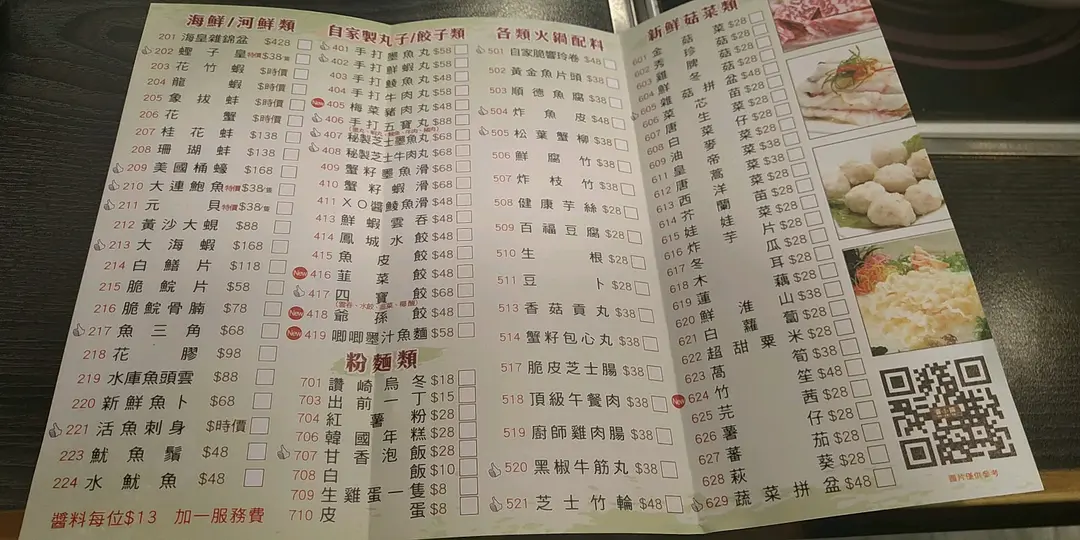 海鮮/河鮮類
201 海皇雜錦盆 $428
202 蟶子皇 特價$38/隻
203 花竹蝦 $時價
204 龍蝦 $時價
205 象拔蚌 $時價
206 花蟹 $時價
207 桂花蚌 $138
208 珊瑚蚌 $138
209 美國桶蠔 $168
210 大連鮑魚 特價$38/隻
211 元貝 特價$38/隻
212 黃沙大蜆 $88
213 大海蝦 $168
214 白鱔片 $118
215 脆鯇片 $58
216 脆鯇骨腩 $78
217 魚三角 $68
218 花膠 $98
219 水庫魚頭雲 $88
220 新鮮魚卜 $68
221 活魚刺身 $時價
223 魷魚鬚 $48
224 水魷魚 $48
醬料每位$13 加一服務費
自家製丸子/餃子類
401 手打墨魚丸 $58
402 手打鮮蝦丸 $58
403 手打鯪魚丸 $48
404 手打牛肉丸 $58
New 405 梅菜豬肉丸 $48
406 手打五寶丸 $88
407 秘製芝士墨魚丸 $68
408 秘製芝士牛肉丸 $68
409 蟹籽墨魚滑 $68
410 蟹籽蝦滑 $68
411 XO醬鯪魚滑 $48
413 鮮蝦雲吞 $48
414 鳳城水餃 $48
415 魚皮餃 $48
New 416 韮菜餃 $48
417 四寶餃 $68
New 418 爺孫餃 $48
New 419 唧唧墨汁魚麵 $58
粉麵類
701 讚崎烏冬 $18
703 出前一丁 $15
704 紅薯粉 $28
706 韓國年糕 $28
707 甘香泡飯 $28
708 白飯 $10
709 生雞蛋一隻 $8
710 皮蛋 $8
各類火鍋配料
501 自家脆響玲卷 $48
502 黃金魚片頭 $38
503 順德魚腐 $38
504 炸魚皮 $48
505 松葉蟹柳 $38
506 鮮腐竹 $38
507 炸枝竹 $38
508 健康芋絲 $28
509 百福豆腐 $28
510 生根 $28
511 豆卜 $28
513 香菇貢丸 $38
514 蟹籽包心丸 $38
517 脆皮芝士腸 $38
518 頂級午餐肉 $38
519 廚師雞肉腸 $38
520 黑椒牛筋丸 $38
521 芝士竹輪 $48
新鮮菇菜類
601 金菇 $28
602 秀珍菇 $28
603 雞脾菇 $28
604 鮮冬菇 $28
605 雜菇拼盆 $48
606 菜芯苗 $28
607 唐生菜 $28
608 白菜仔 $28
609 油麥菜 $28
611 皇帝菜 $38
612 唐蒿菜 $38
613 西洋菜 $28
614 芥蘭苗 $28
615 娃娃菜 $28
616 炸芋片 $28
617 冬瓜 $28
618 木耳 $28
619 蓮藕 $28
620 鮮淮山 $38
621 白蘿蔔 $28
622 超甜粟米 $28
623 萵筍 $38
New 624 竹笙 $48
625 芫茜 $28
626 薯仔 $28
627 蕃茄 $28
628 萩葵 $28
629 蔬菜拼盆 $48
圖片僅供參考